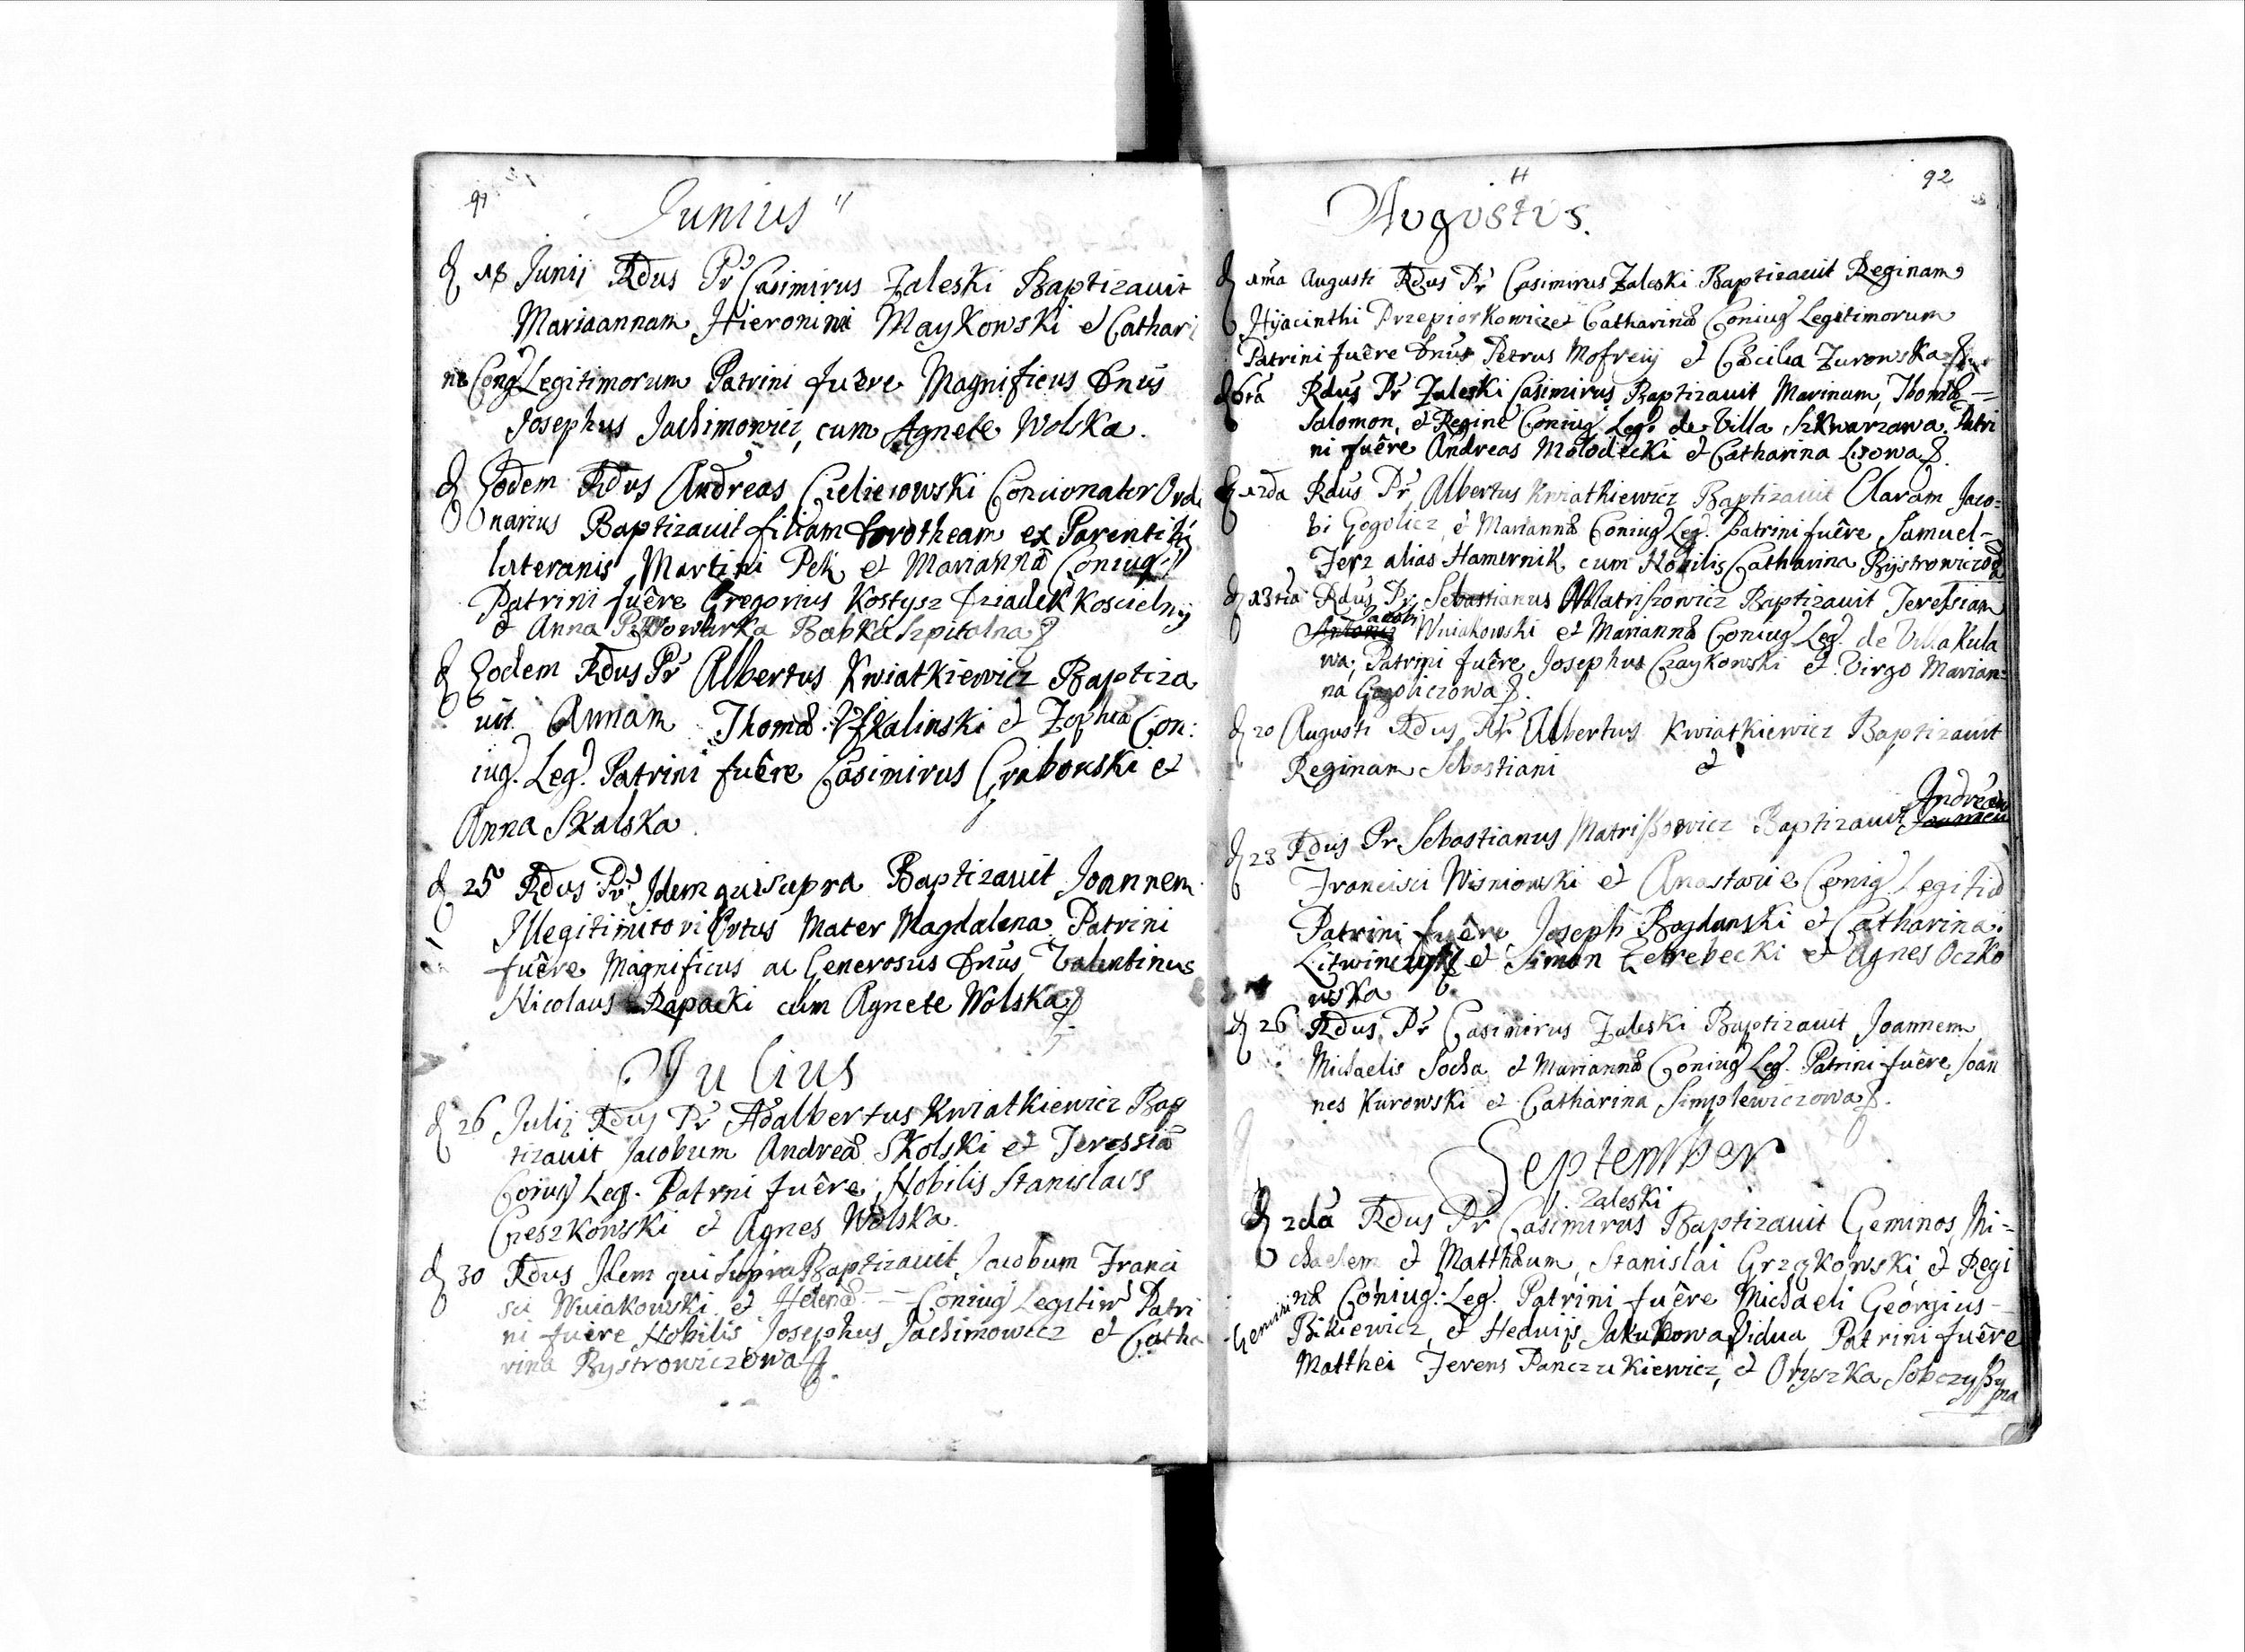 91
Junius
d 18 Junij Rdus Pr Casimirus Zaleski Baptizavit
Mariaannam Hieronimi Maykowski et Cathari
nae Coniug Legitimorum Patrini fuêre Magnificus Dnus
Josephus Jachimowicz, cum Agnete Wolska.
d Eodem Rdus Andreas Concionator Ordi
narius Baptizavit filiam Dorotheam ex Parentibus
luteranis Martini Pek et Mariannae Coniug:
Patrini fuêre Gregorius Kostysz Dziadek Koscielny
et Anna Babka Szpitalna
d Eodem Rdus Pr Albertus Kwiatkiewicz Baptiza
uit Annam Thomae et Zophia Con:
iug. Leg. Patrini fuêre Casimirus Grabowski et
Anna Skalska.
d 25 Rdus Pr Idem qui supra Baptizavit Joannem
Illegitimi tori Ortus Mater Magdalena Patrini
fuêre Magnificus ac Generosus Dnus Valentinus
Nicolaus Rapacki cum Agnete Wolska
Julius
d 26 Julij Rdus Pr Adalbertus Kwiatkiewicz Bap
tizauit Jacobum Andreae Skolski et Teressiae
Coniug Leg. Patrini fuêre, Nobilis Stanislaus
Cieszkowski et Agnes Wolska.
d 30 Rdus Idem qui supra Baptizauit Jacobum Franci
sci Wniakowski et Helenae Coniug Legitim Patri
ni fuere Nobilis Josephus Jachimowicz et Catha
rina Bystrowiczowa
92
Augustus.
d 1ma Augusti Rdus Pr Casimirus Zaleski Baptizauit Reginam
Hijacinthi Przepiorkowicz et Catharinae Coniug Legitimorum
Patrini fuêre Dnus Petrus Mofreij et Caecilia Zurowska
d 6ta Rdus Pr Zaleski Casimirus Baptizauit Marinam, Thomae
Salomon, et Regine Coniug Leg. de Villa Szkwarzawa. Patri
ni fuêre Andreas Molodecki et Catharina Lisowa
d 12da Rdus Pr Albertus Kwiatkiewicz Baptizauit Claram Jaco-
bi Gogolicz, et Mariannae Coniug Leg. Patrini fuêre Samuel
Jerz alias Hamernik cum Nobilis Catharina Bijstrowiczowa
d 13tia Rdus Pr Sebastianus Matriszowicz Baptizauit Teressiam
Jacobi Wniakowski et Mariannae Coniug Leg. de Villa Kula
wa; Patrini fuêre Josephus Czaykowski et Virgo Marian:
na Gogoliczowa
d 20 Augusti Rdus Pr Albertus Kwiatkiewicz Baptizauit
Reginam Sebastiani et
d 23 Rdus Pr Sebastianus Matriszowicz Baptizauit Andream
Francisci Wisniowski et Anastasie Coniug Legitim
Patrini fuêre Joseph Bogdanski et Catharina
et Simon et Agnes Oczko
wska
d 26 Rdus Pr Casimirus Zaleski Baptizauit Joannem
Michaelis Socha et Mariannae Coniug Leg. Patrini fuêre Joan
nes Kurowski et Catharina Simplewiczowa
September
Zaleski
d 2da Rdus Pr Casimirus Baptizauit Geminos, Mi-
chaelem et Matthaeum, Stanislai Grzykowski et Regi
nae Coniug: Leg. Patrini fuêre Michaeli Georgius
Gemini
Bikiewicz, et Hedvigis Jakubowa Vidua Patrini fuêre
Matthei Panczukiewicz, et Oryszka